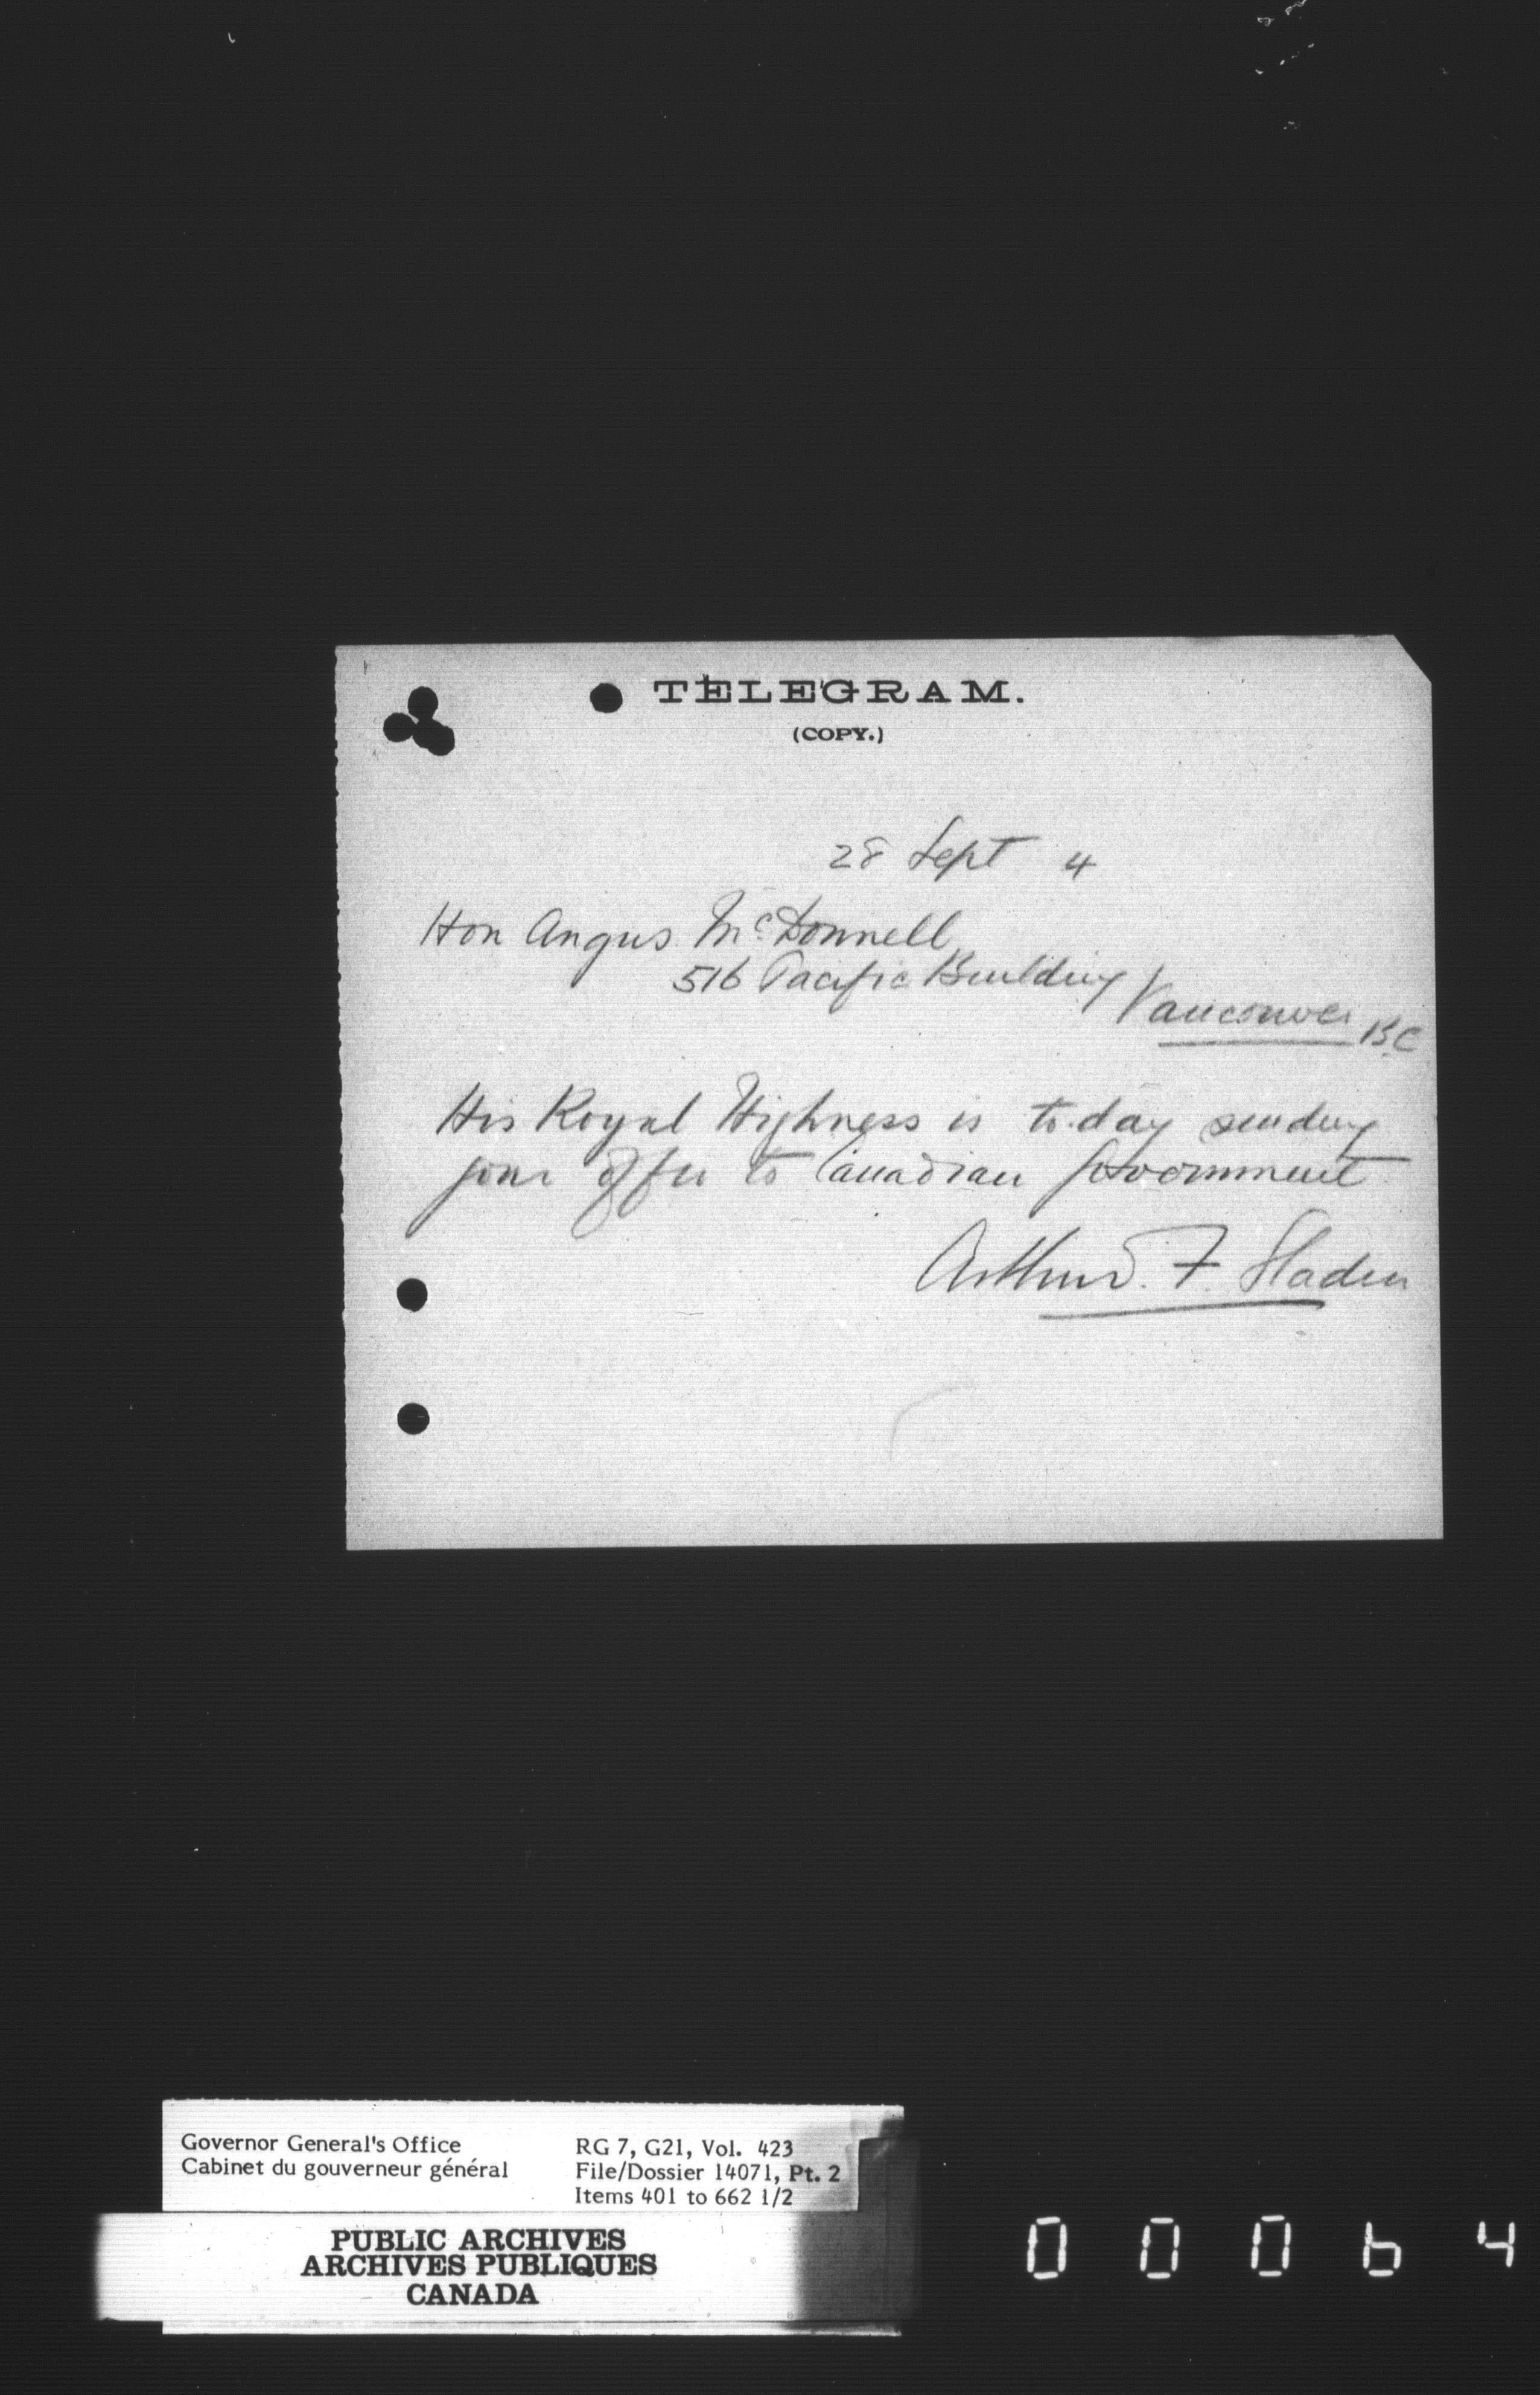 TELEGRAM.
(COPY.)
28 Sept 4
Hon Angus McDonnell
516 Pacific Building
Vancouver BC
His Royal Highness is to-day sending
your offer to Canadian Government
Arthur. F. Sladen
Governor General's Office
Cabinet du gouverneur général
RG 7, G21, Vol. 423
File/Dossier 14071, Pt. 2
Items 401 to 662 1/2
PUBLIC ARCHIVES
ARCHIVES PUBLIQUES
CANADA
00064